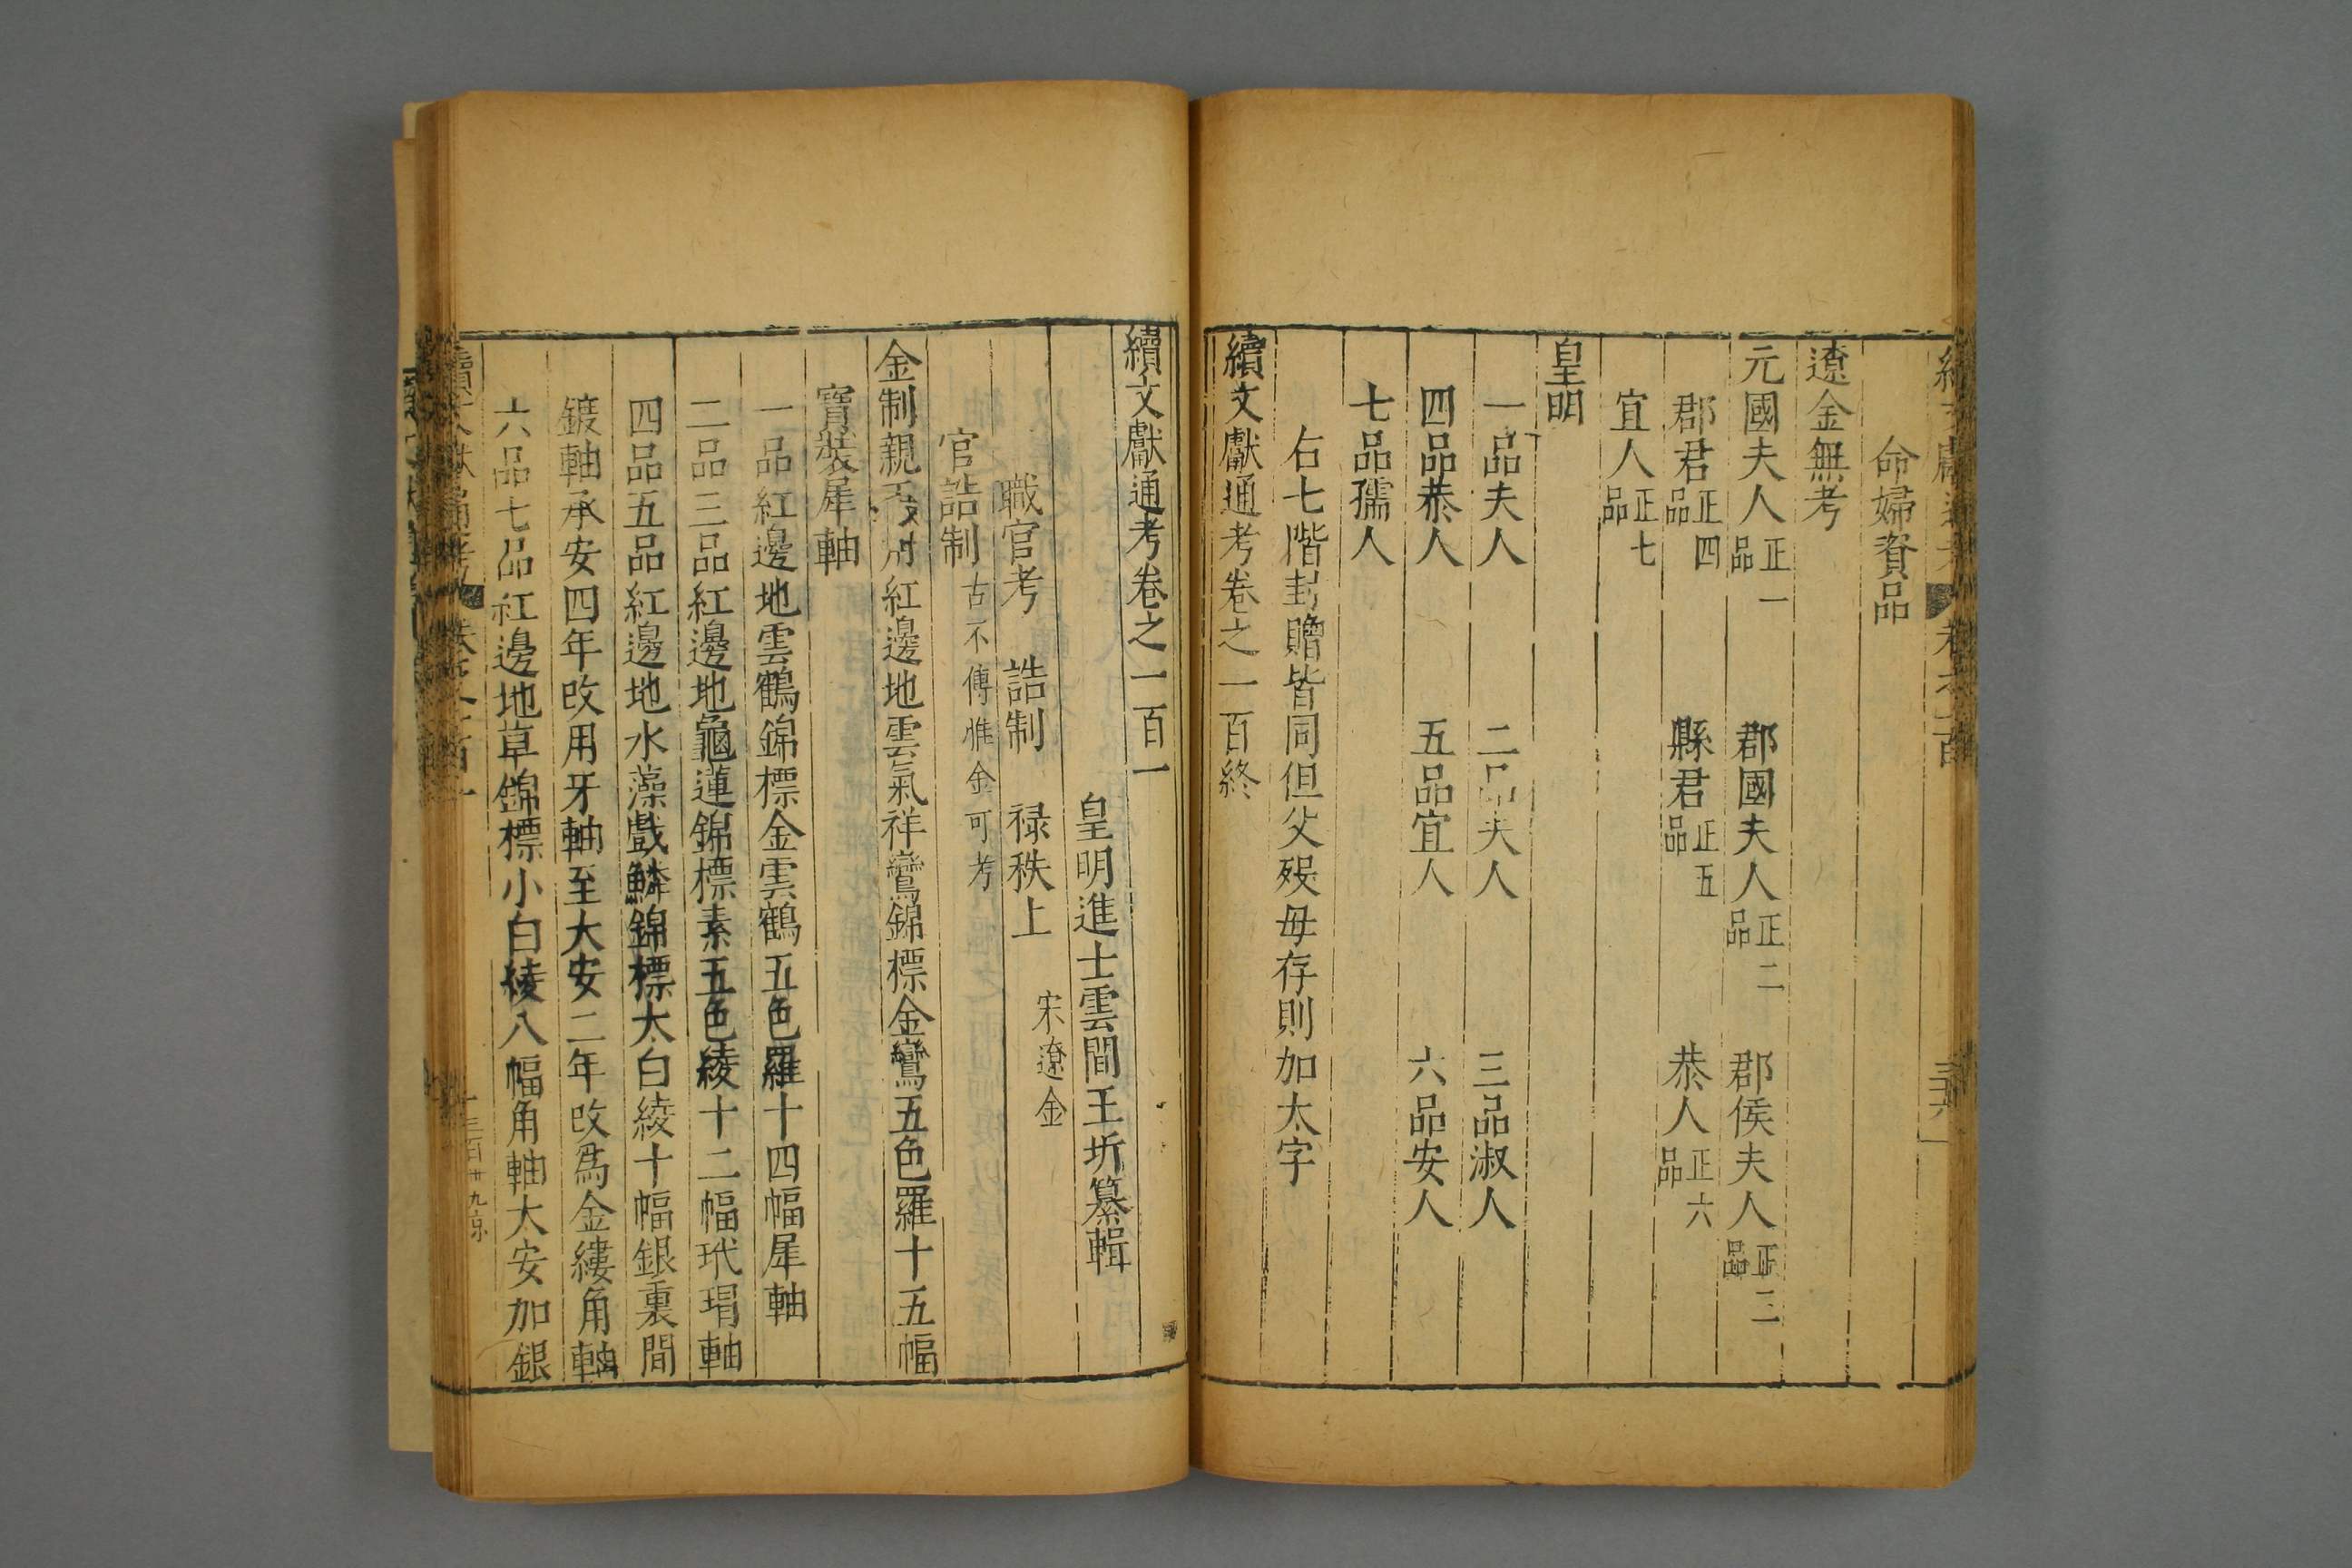 命婦資品
遼金無考
元國夫人正一品 郡國夫人正二品 郡侯夫人正三品
郡君正四品 縣君正五品 恭人正六品
宜人正七品
皇明
一品夫人 二品夫人 三品淑人
四品恭人 五品宜人 六品安人
七品孺人
右七階封贈皆同但父歿母存則加太字
續文獻通考卷之一百終
續文獻通考卷之一百一
皇明進士雲間王圻纂輯
職官考 誥制 禄秩上 宋遼金
官誥制 古不傳惟金可考
金制親王 紅邊地雲氣祥鸞錦標金鸞五色羅十五幅
寶裝犀軸
一品紅邊地雲鶴錦標金雲鶴五色羅十四幅犀軸
二品三品紅邊地龜蓮錦標素五色綾十二幅玳瑁軸
四品五品紅邊地水藻戲鱗錦標大白綾十幅銀裏間
鍍軸承安四年改用牙軸至大安二年改爲金縷角軸
六品七品紅邊地草錦標小白綾八幅角軸大安加銀